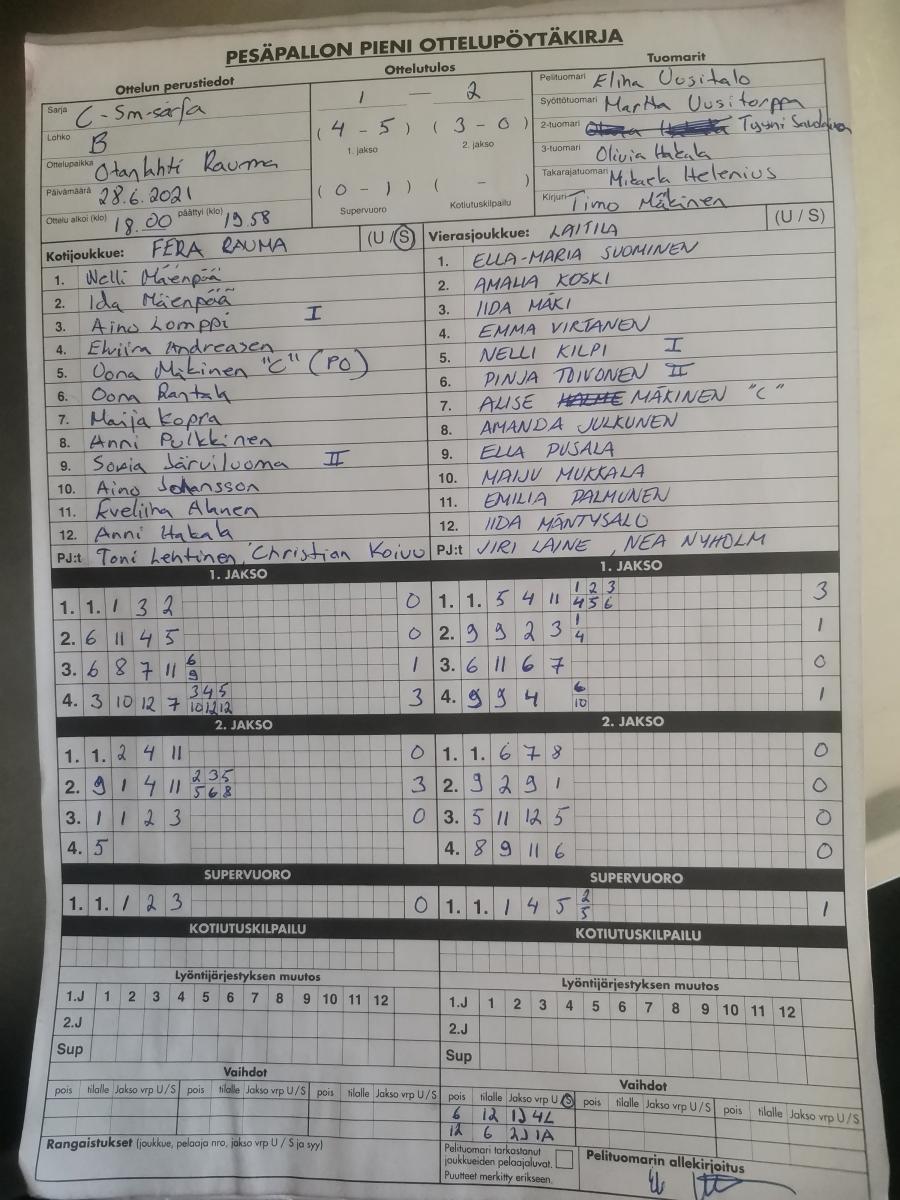 PESÄPALLON PIENI OTTELUPÖYTÄKIRJA
Ottelun perustiedot
Sarja C-Sm-sarja
Lohko B
Ottelupaikka Otanlahti Rauma
Päivämäärä 28.6.2021
Ottelu alkoi (klo) 18.00 päättyi (klo) 19.58
Ottelutulos
1 — 2
(4 - 5) (3 - 0)
1. jakso 2. jakso
(0 - 1) ( - )
Supervuoro Kotiutuskilpailu
Tuomarit
Pelituomari Elina Uusitalo
Syöttötuomari Martta Uusitorppa
2-tuomari Tyyni
3-tuomari Olivia Hakala
Takarajatuomari Mikaela Helenius
Kirjuri Timo Mäkinen
Kotijoukkue: FERA RAUMA (U / S)
1. Nelli Mäenpää
2. Ida Mäenpää
3. Aino Lomppi I
4. Elviira Andreasen
5. Oona Mäkinen "C" (PO)
6. Oona Rantala
7. Maija Kopra
8. Anni Pulkkinen
9. Sonia Järviluoma II
10. Aino Johansson
11. Eveliina Ahnen
12. Anni Hakala
PJ:t Toni Lehtinen, Christian Koivu
Vierasjoukkue: LAITILA (U / S)
1. ELLA-MARIA SUOMINEN
2. AMALIA KOSKI
3. IIDA MÄKI
4. EMMA VIRTANEN
5. NELLI KILPI I
6. PINJA TOIVONEN II
7. ALISE MÄKINEN "C"
8. AMANDA JULKUNEN
9. ELLA PUSALA
10. MAIJU MUKKALA
11. EMILIA PALMUNEN
12. IIDA MÄNTYSALO
PJ:t JIRI LAINE, NEA NYHOLM
1. JAKSO
1. 1. 1 3 2 0
2. 6 11 4 5 0
3. 6 8 7 11 6 9 1
4. 3 10 12 7 3 4 5 10 12 12 3
2. JAKSO
1. 1. 2 4 11 0
2. 9 1 4 11 2 3 5 5 6 8 3
3. 1 1 2 3 0
4. 5
SUPERVUORO
1. 1. 1 2 3 0
KOTIUTUSKILPAILU
Lyöntijärjestyksen muutos
1.J 1 2 3 4 5 6 7 8 9 10 11 12
2.J
Sup
Vaihdot
pois tilalle Jakso vrp U/S pois tilalle Jakso vrp U/S pois tilalle Jakso vrp U/S
Rangaistukset (joukkue, pelaaja nro, jakso vrp U / S ja syy)
1. JAKSO
1. 1. 5 4 11 1 2 3 4 5 6 3
2. 9 9 2 3 1 4 1
3. 6 11 6 7 0
4. 9 9 4 6 10 1
2. JAKSO
1. 1. 6 7 8 0
2. 9 2 9 1 0
3. 5 11 12 5 0
4. 8 9 11 6 0
SUPERVUORO
1. 1. 1 4 5 2 5 1
KOTIUTUSKILPAILU
Lyöntijärjestyksen muutos
1.J 1 2 3 4 5 6 7 8 9 10 11 12
2.J
Sup
Vaihdot
pois tilalle Jakso vrp U/S pois tilalle Jakso vrp U/S pois tilalle Jakso vrp U/S
6 12 1J 4L
12 6 2J 1A
Pelituomari tarkastanut
joukkueiden pelaajaluvat.
Puutteet merkitty erikseen.
Pelituomarin allekirjoitus